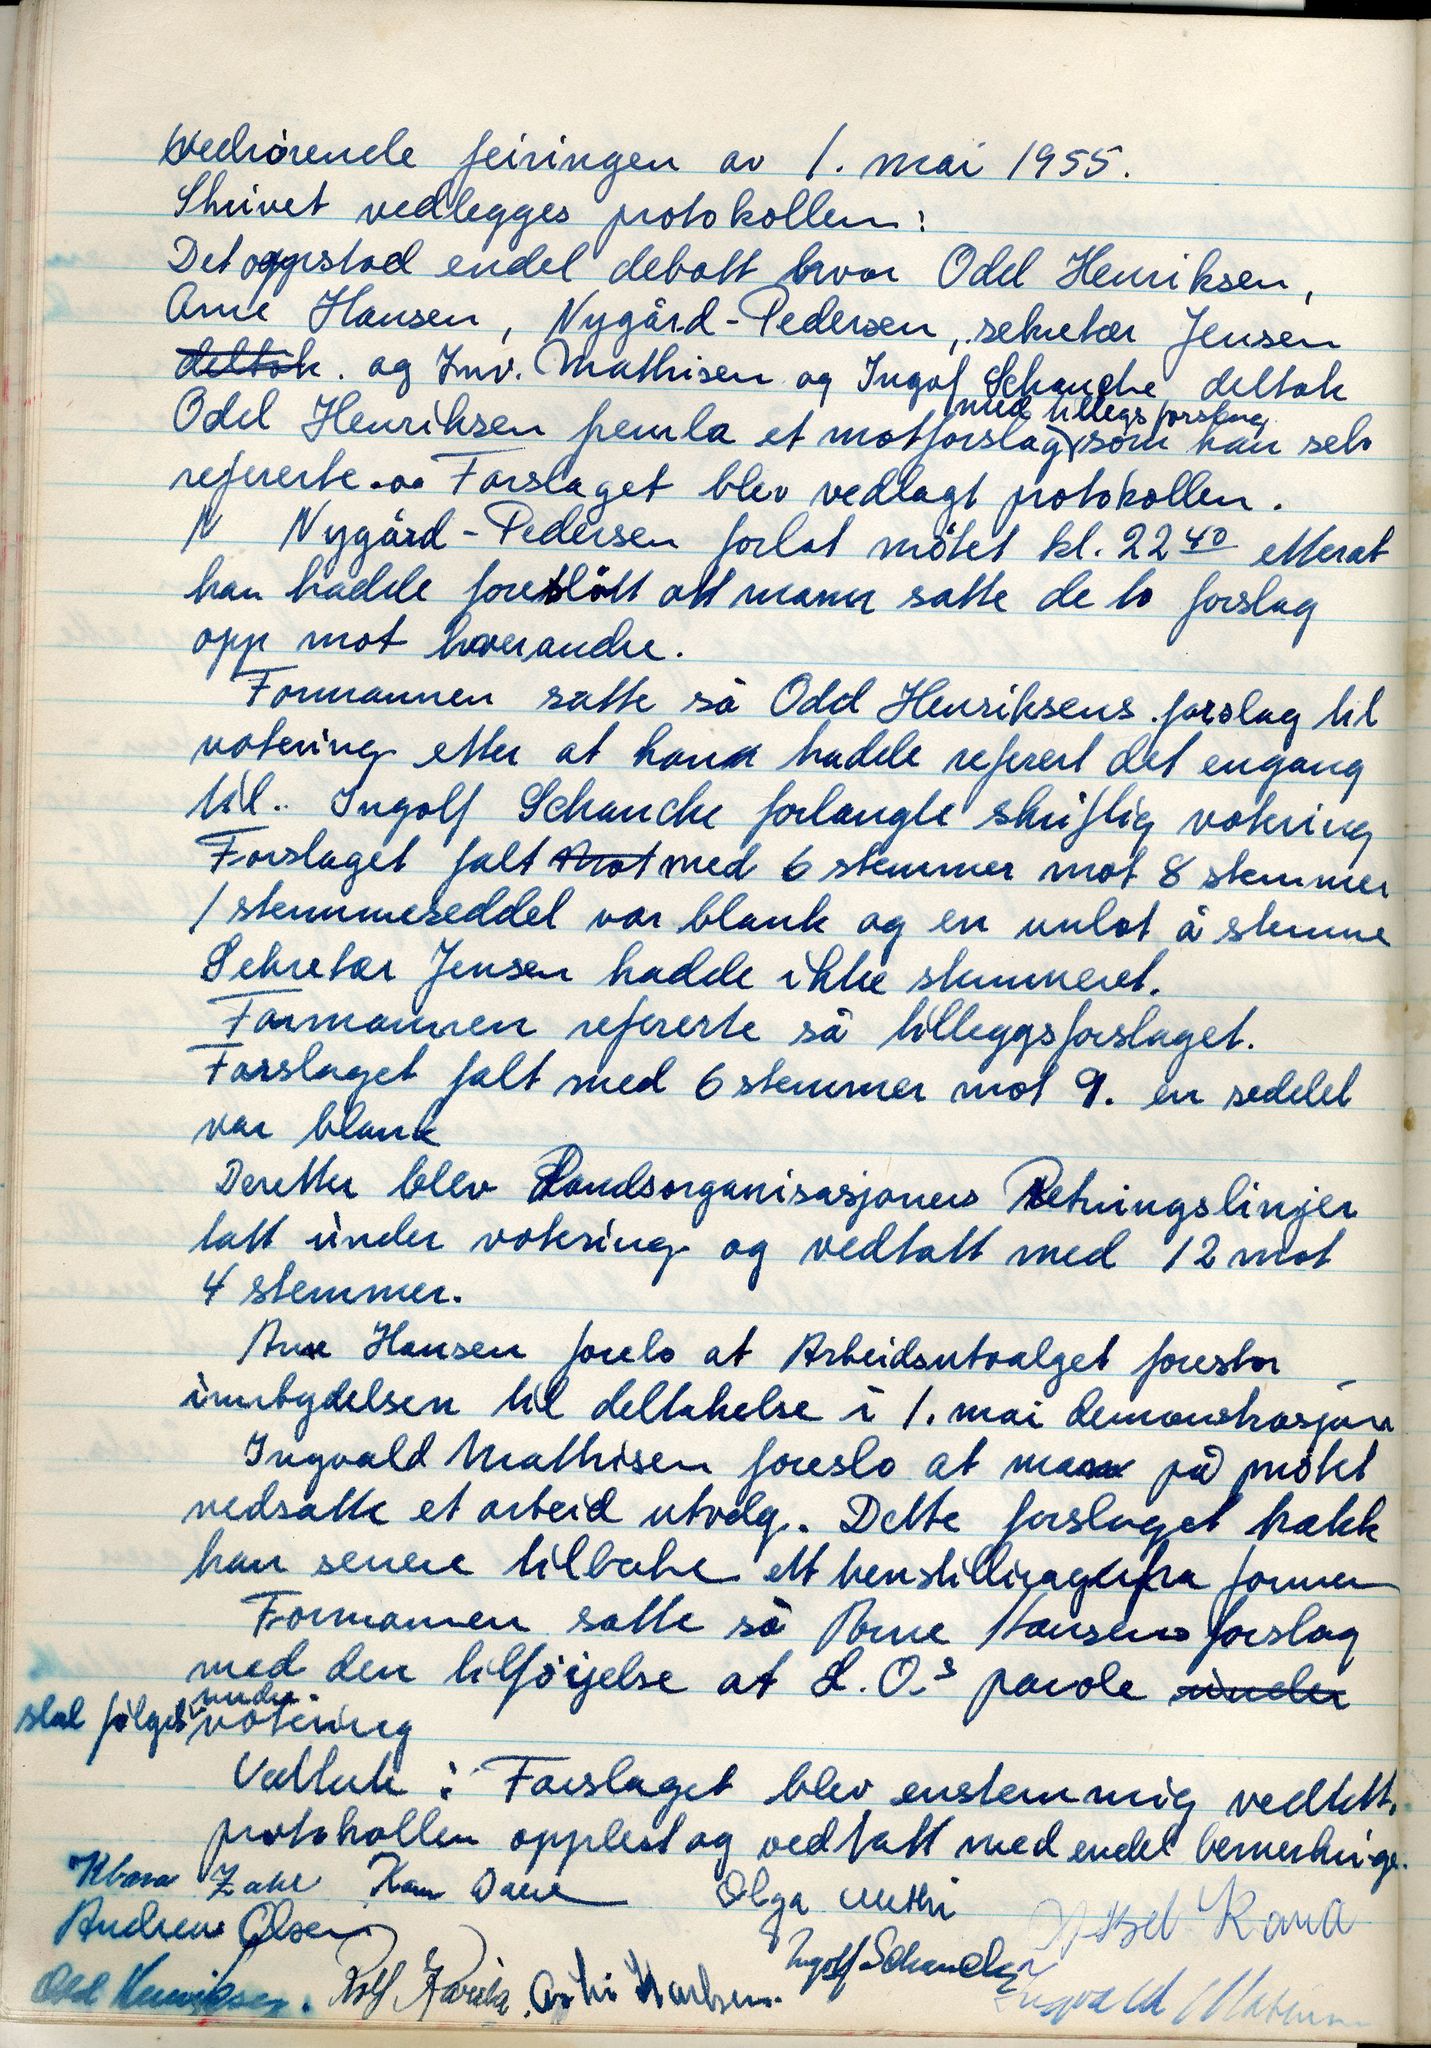 Vedrörende feiringen av 1. mai 1955.
Skrivet vedlegges protokollen:
Det oppstod endel debatt hvor Odd Henriksen,
Arne Hansen, Nygård-Pedersen, sekretær Jensen
deltok. og Inv. Mathisen og Ingolf Schanche deltok
med tilleggsforslag
Odd Henriksen fremla et motforslag som han selv
refererte. Forslaget blev vedlagt protokollen.
N Nygård-Pedersen forlot mötet kl. 22 40 etterat
han hadde foreslått att mann satte de to forslag
opp mot hverandre.
Formannen satte så Odd Henriksens forslag til
votering etter at han hadde referert det engang
til.. Ingolf Schancke forlangte skriftlig votering
Forslaget falt mot med 6 stemmer mot 8 stemmer
1 stemmeseddel var blank og en unlot å stemme
Sekretær Jensen hadde ikke stemmeret.
Formannen refererte så tilleggsforslaget.
Forslaget falt med 6 stemmer mot 9. en seddel
var blank
Deretter blev Landsorganisasjonens Retningslinjer
tatt under votering og vedtatt med 12 mot
4 stemmer.
Arne Hansen forelo at Arbeidsutvalget forestor
innbydelsen til deltakelse i 1. mai demonstrasjonen
Ingvald Mathisen foreslo at man på mötet
nedsatte et arbeid utvalg. Dette forslaget trakk
han senere tilbake ett henstilling fra formen
Formannen satte så Arne Hansens forslag
med den tilföijelse at L.O.s parole under
skal fölges under votering
Vedtak: Forslaget blev enstemmig vedtatt.
protokollen opplest og vedtatt med endel bemerkninge.
Klara Olga
Andreas Olsen Ingolf Schancke
Odd Henriksen. Rolf Ingvald